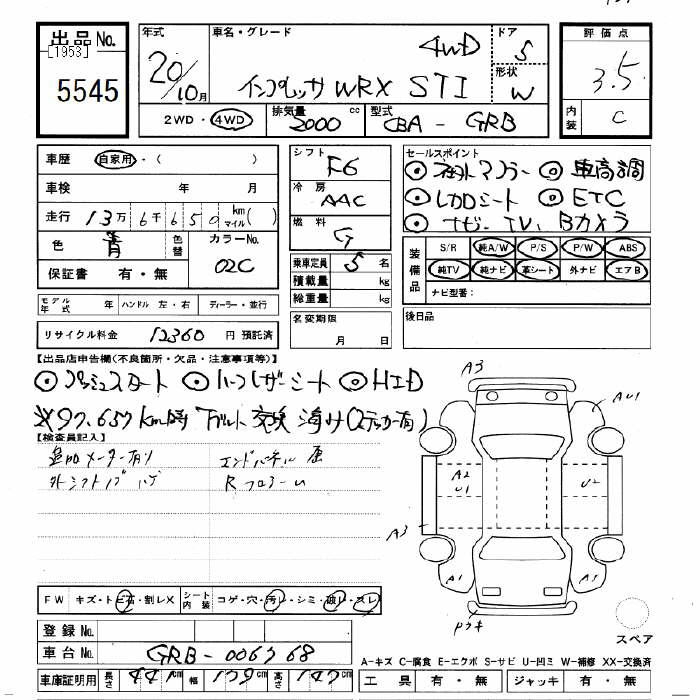 出品 No. [1953] 5545
年式 20/10月
車名・グレード 4WD インプレッサ WRX STI
ドア 5
形状 W
評価点 3.5
内装 C
2WD・4WD
排気量 2000 cc
型式 CBA - GRB
車歴 自家用・( )
車検 年 月
走行 13万6千650 km マイル( )
色 青 色替
カラーNo. 02C
保証書 有・無
シフト F6
冷房 AAC
燃料 G
乗車定員 5 名
積載量 kg
総重量 kg
名変期限 月 日
セールスポイント
◎社外マフラー ◎車高調
◎レカロシート ◎ETC
◎ナビ、TV、Bカメラ
装備品 S/R 純A/W P/S P/W ABS
純TV 純ナビ 革シート 外ナビ エアB
ナビ型番:
後日品
モデル年式 年 ハンドル 左・右 ディーラー・並行
リサイクル料金 12360 円 預託済
【出品店申告欄(不良箇所・欠品・注意事項等)】
◎プッシュスタート ◎ハーフレザーシート ◎HID
※97,657km時 T/ベルト交換済み(ステッカー有)
【検査員記入】
追加メーター有り エンドパネル
外シフトノブ ハゲ Rフロアー
A3
AU1
A2
U1
U2
A3
A1
A1
スペア
FW キズ・トビ石・割レX シート内装 コゲ・穴・汚レ・シミ・破レ・スレ
登録 No.
車台 No. GRB-006768
車庫証明用 長さ 441cm 幅 179cm 高さ 147cm
A-キズ C-腐食 E-エクボ S-サビ U-凹ミ W-補修 XX-交換済
工具 有・無 ジャッキ 有・無